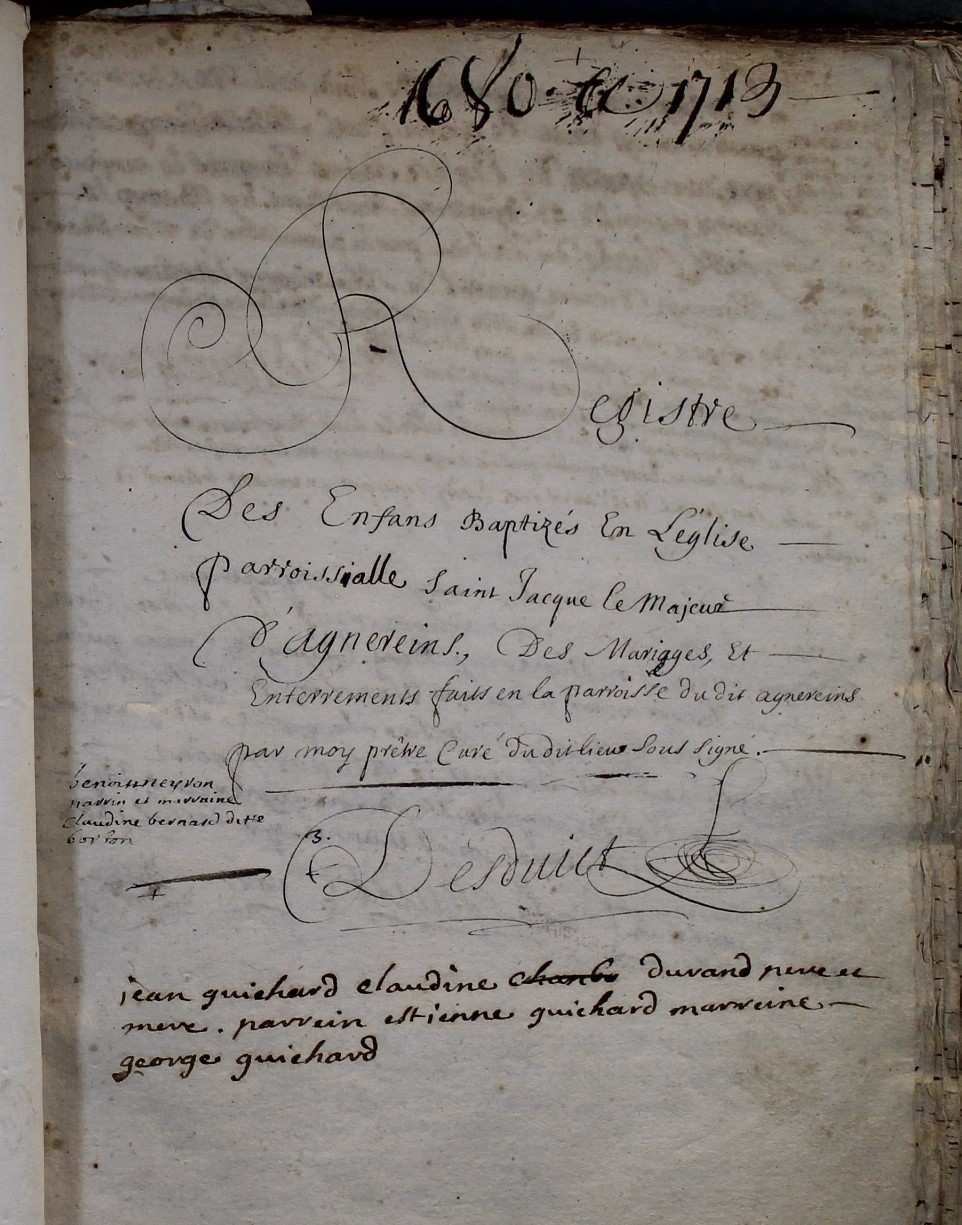 1680 et 1713
Registre
Des Enfans Baptizés En L'église
parroissialle Saint Jacque le Majeur
D'agnereins, Des Mariages, Et
Enterrements faits en la parroisse du dit agnereins
par moy prêtre Curé du dit lieu sous signé.
benoist neyron
parrin et marraine
claudine bernard ditte
B. Desduict
jean guichard claudine durand pere et
mere. parrein estienne guichard marreine
george guichard